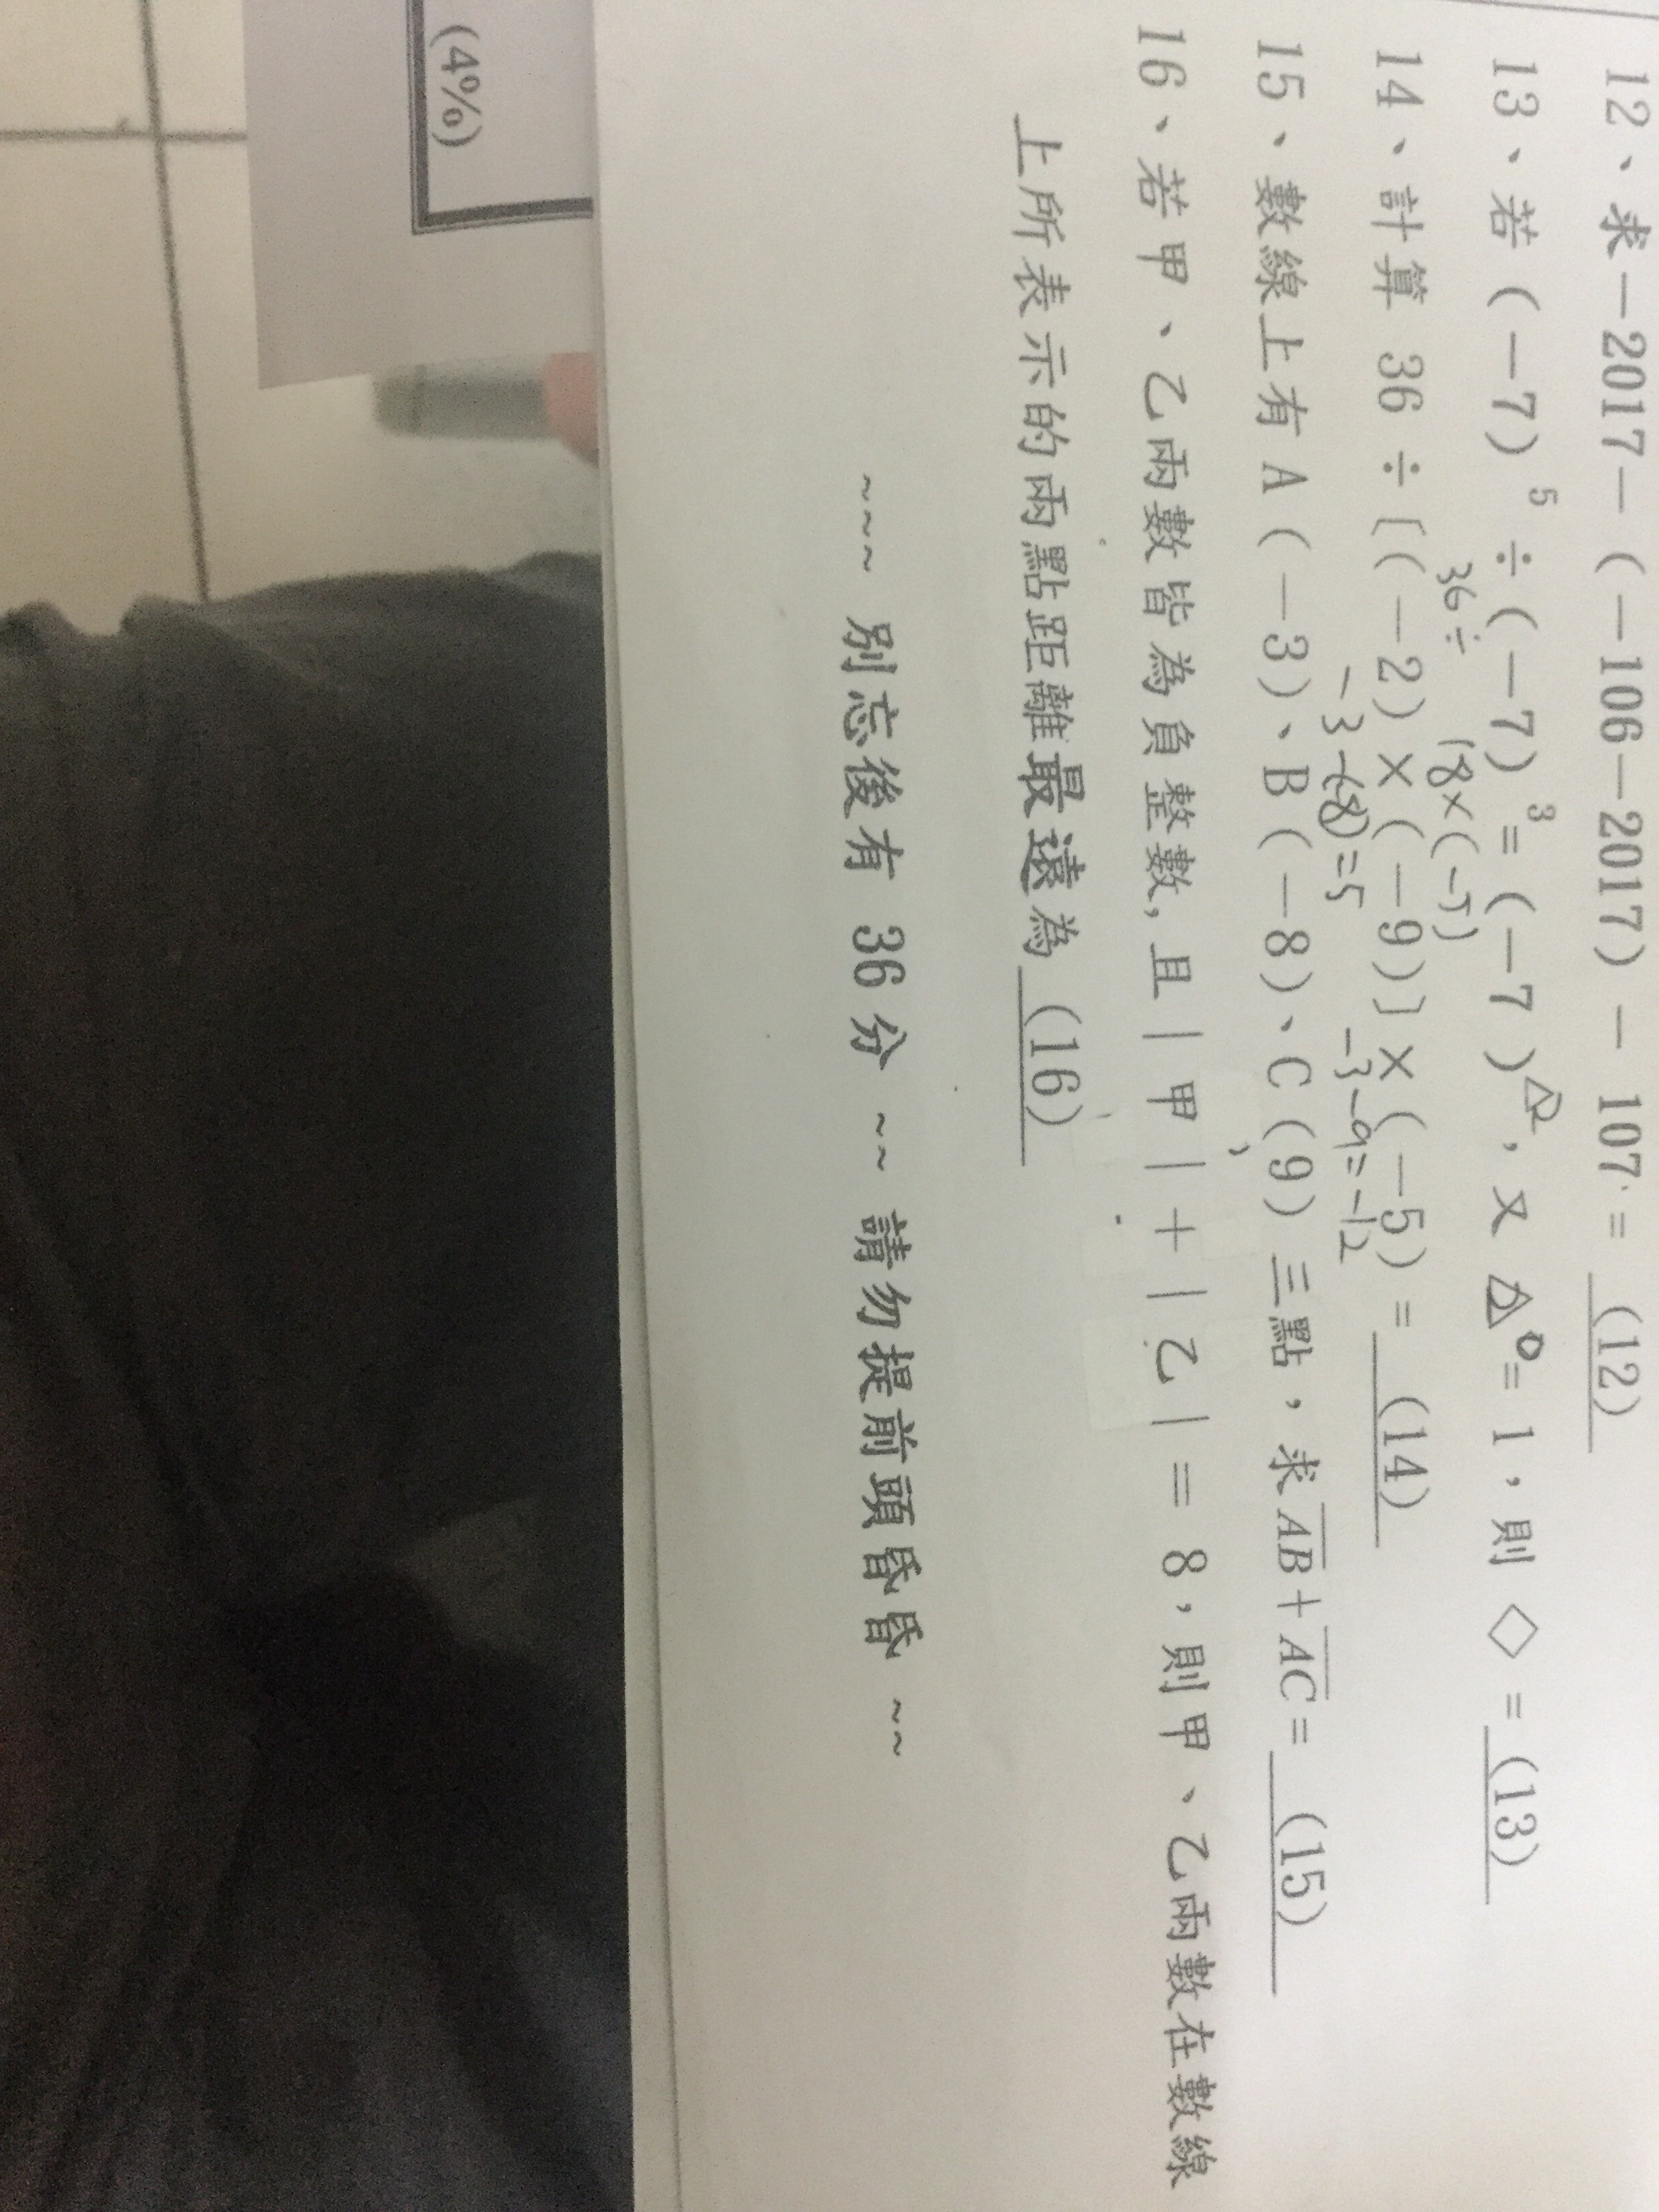 12、求－2017－(－106－2017)－ 107 = (12)
13、若 (－7)⁵ ÷ (－7)³ = (－7)^△, 又 △⁰ = 1,則 ◇ = (13)
36÷ 18×(-5)
14、計算 36 ÷ [(－2) × (－9)] × (－5) = (14)
-3-(-8)=5 -3-9=-12
15、數線上有 A (－3)、B (－8)、C (9) 三點,求 AB + AC = (15)
16、若甲、乙兩數皆為負整數,且 | 甲 | + | 乙 | = 8,則甲、乙兩數在數線
上所表示的兩點距離最遠為 (16)
~~~ 別忘後有 36 分 ~~ 請勿提前頭昏昏 ~~
(4%)